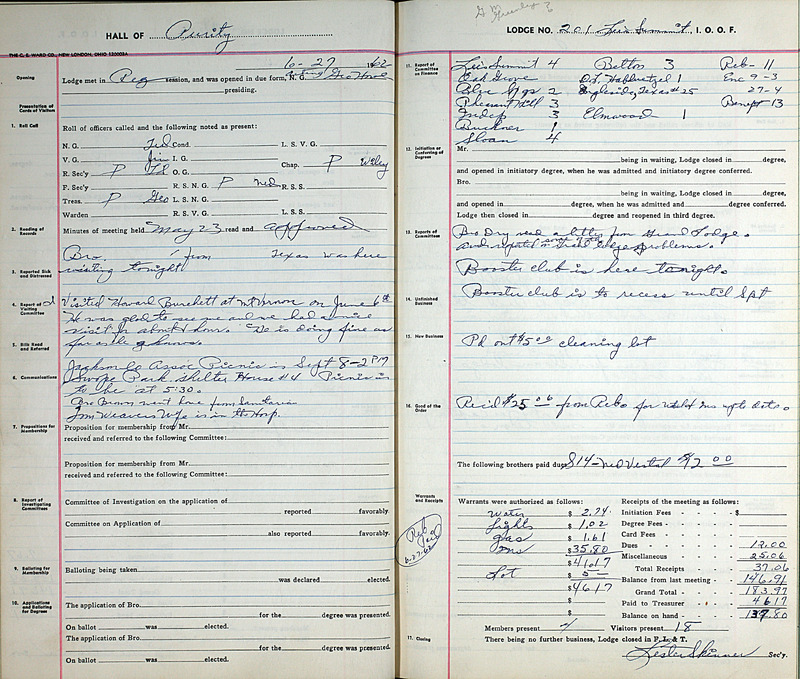 HALL OF Purity
THE C. E. WARD CO., NEW LONDON, OHIO
6-27 1962
Opening
Lodge met in Reg session, and was opened in due form, N. G.
presiding.
Presentation of Cards of Visitors
1. Roll Call
Roll of officers called and the following noted as present:
N. G. Cond. L. S. V. G.
V. G. Jim I. G. Chap. P Wiley
R. Sec'y P O. G.
F. Sec'y R. S. N. G. P Ned R. S. S.
Treas. P Geo L. S. N. G.
Warden R. S. V. G. L. S. S.
2. Reading of Records
Minutes of meeting held May 23 read and approved
Bro. from Texas was here
3. Reported Sick and Distressed
visiting tonight
4. Report of Visiting Committee
Visited Howard Burchett at Mt Vernon on June 6th
He was glad to see me and we had a nice
visit for about hour. He is doing fine as
5. Bills Read and Referred
far as he knows.
Jackson Co Assoc Picnic is Sept 8-2
6. Communications
Swope Park, Shelter House #4 Picnic is
to be at 5:30.
Bro Brown went home from Sanitarium
Tom Weavers Wife is in the Hosp.
7. Propositions for Membership
Proposition for membership from Mr.
received and referred to the following Committee:
Proposition for membership from Mr.
received and referred to the following Committee:
8. Report of Investigating Committees
Committee of Investigation on the application of
reported favorably.
Committee on Application of
also reported favorably.
9. Balloting for Membership
Balloting being taken
was declared elected.
10. Applications and Balloting for Degrees
The application of Bro.
for the degree was presented.
On ballot was elected.
The application of Bro.
for the degree was presented.
On ballot was elected.
LODGE NO. 201 Lee's Summit, I. O. O. F.
11. Report of Committee on Finance
Lee's Summit 4 Belton 3 Reb- 11
Oak Grove 1 Enc 9-3
Blue Spgs 2 Ingleside, Texas #25 27-4
Pleasant Hill 3 13
Indep 3 Elmwood 1
Buckner 1
Sloan 4
12. Initiation or Conferring of Degrees
Mr.
being in waiting, Lodge closed in degree,
and opened in initiatory degree, when he was admitted and initiatory degree conferred.
Bro.
being in waiting, Lodge closed in degree,
and opened in degree, when he was admitted and degree conferred.
Lodge then closed in degree and reopened in third degree.
13. Reports of Committees
Bro Dry read a letter from Grand Lodge.
and reported on some of the Grand Lodge problems.
Booster club is here tonight.
14. Unfinished Business
Booster club is to recess until Spt
15. New Business
Pd out $5.00 cleaning lot
16. Good of the Order
Recid $25.06 from Rebs for
The following brothers paid dues 814-Ned Vestal $12.00
Warrants and Receipts
Warrants were authorized as follows:
Water $ 2.74
Lights $ 1.02
Gas $ 1.61
Ins $ 35.80
$ 41.17
Lot $ 5
$ 46.17
Receipts of the meeting as follows:
Initiation Fees $
Degree Fees
Card Fees
Dues 12.00
Miscellaneous 25.06
Total Receipts 37.06
Balance from last meeting 146.91
Grand Total 183.97
Paid to Treasurer 46.17
Balance on hand 137.80
Reb
Paid
6-27-62
Members present Visitors present 18
17. Closing
There being no further business, Lodge closed in F. L. & T.
Lester Skinner Sec'y.